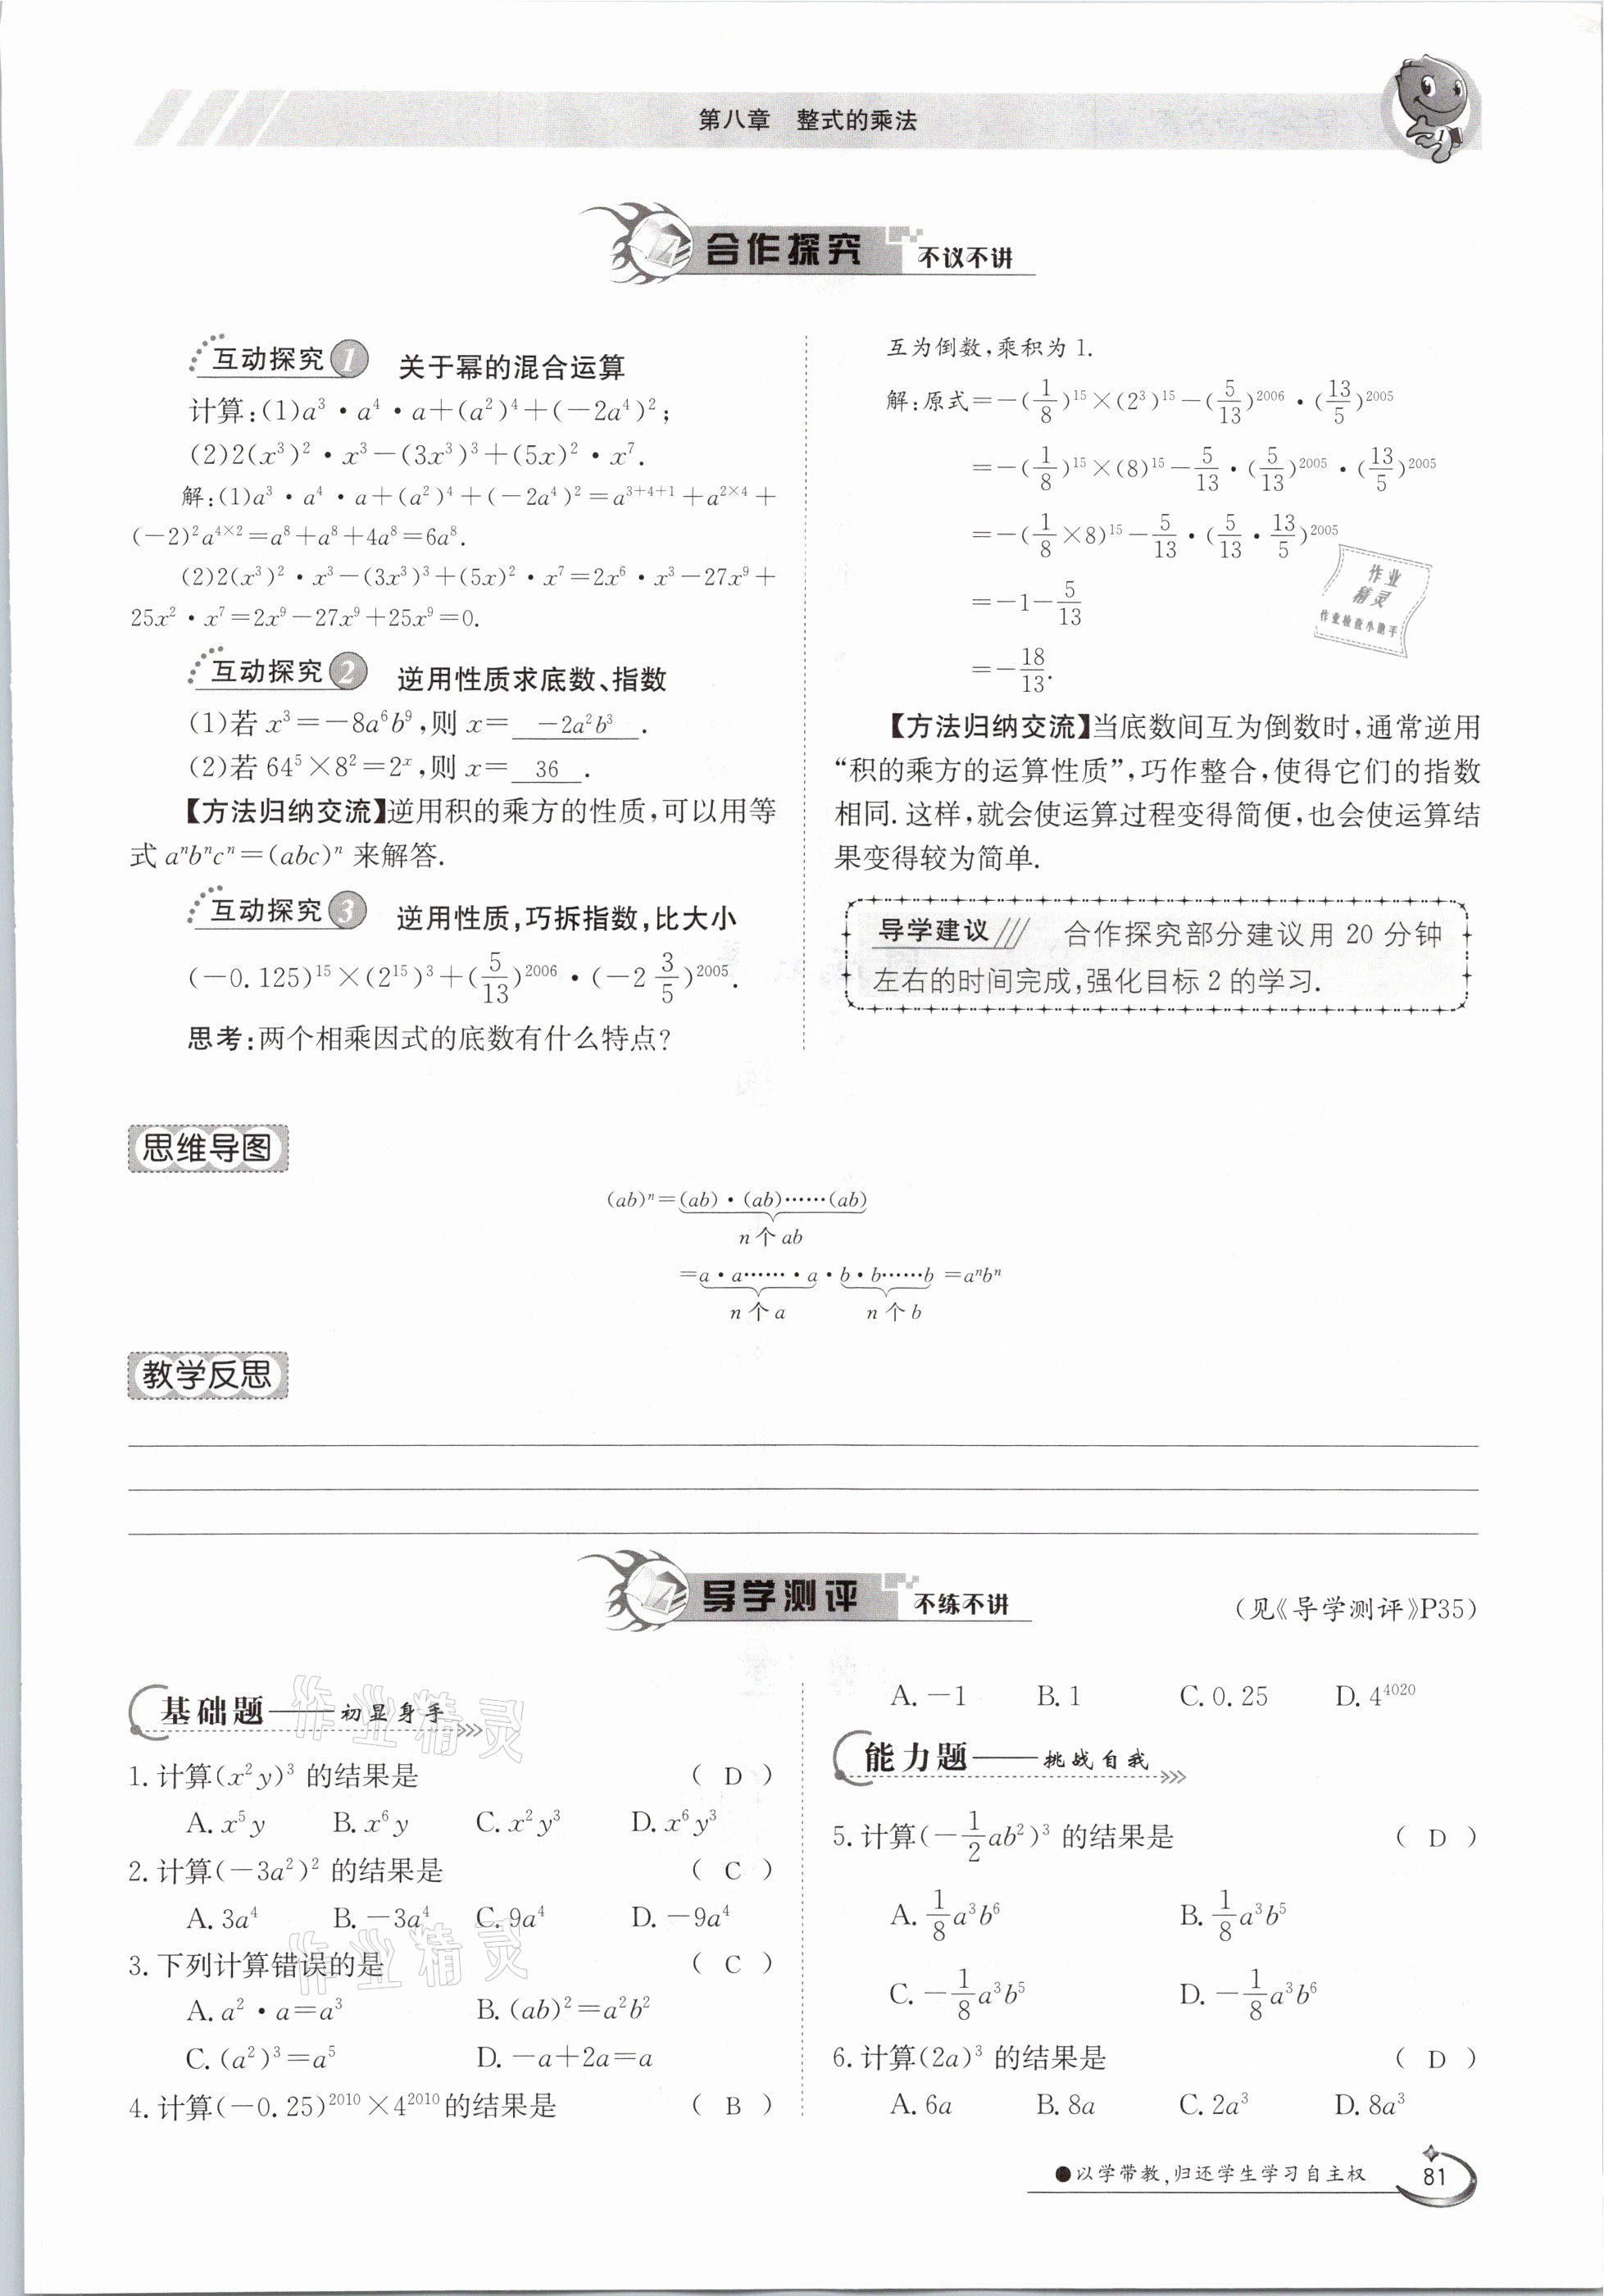 第八章 整式的乘法
合作探究 不议不讲
互动探究1 关于幂的混合运算
计算:(1)a³·a⁴·a+(a²)⁴+(-2a⁴)²;
(2)2(x³)²·x³-(3x³)³+(5x)²·x⁷.
解:(1)a³·a⁴·a+(a²)⁴+(-2a⁴)²=a³⁺⁴⁺¹+a^{2×4}+
(-2)²a^{4×2}=a⁸+a⁸+4a⁸=6a⁸.
(2)2(x³)²·x³-(3x³)³+(5x)²·x⁷=2x⁶·x³-27x⁹+
25x²·x⁷=2x⁹-27x⁹+25x⁹=0.
互动探究2 逆用性质求底数、指数
(1)若 x³=-8a⁶b⁹,则 x= -2a²b³ .
(2)若 64⁵×8²=2ˣ,则 x= 36 .
【方法归纳交流】逆用积的乘方的性质,可以用等
式 aⁿbⁿcⁿ=(abc)ⁿ 来解答.
互动探究3 逆用性质,巧拆指数,比大小
(-0.125)¹⁵×(2¹⁵)³+(5/13)²⁰⁰⁶·(-2 3/5)²⁰⁰⁵.
思考:两个相乘因式的底数有什么特点?
互为倒数,乘积为1.
解:原式=-(1/8)¹⁵×(2³)¹⁵-(5/13)²⁰⁰⁶·(13/5)²⁰⁰⁵
=-(1/8)¹⁵×(8)¹⁵-5/13·(5/13)²⁰⁰⁵·(13/5)²⁰⁰⁵
=-(1/8×8)¹⁵-5/13·(5/13·13/5)²⁰⁰⁵
=-1-5/13
=-18/13.
作业
精灵
作业检查小助手
【方法归纳交流】当底数间互为倒数时,通常逆用
“积的乘方的运算性质”,巧作整合,使得它们的指数
相同.这样,就会使运算过程变得简便,也会使运算结
果变得较为简单.
导学建议 合作探究部分建议用 20 分钟
左右的时间完成,强化目标 2 的学习.
思维导图
(ab)ⁿ=(ab)·(ab)……(ab)
n个ab
=a·a……·a·b·b……b=aⁿbⁿ
n个a n个b
教学反思
导学测评 不练不讲 (见《导学测评》P35)
基础题——初显身手
1.计算(x²y)³ 的结果是 ( D )
A.x⁵y B.x⁶y C.x²y³ D.x⁶y³
2.计算(-3a²)² 的结果是 ( C )
A.3a⁴ B.-3a⁴ C.9a⁴ D.-9a⁴
3.下列计算错误的是 ( C )
A.a²·a=a³ B.(ab)²=a²b²
C.(a²)³=a⁵ D.-a+2a=a
4.计算(-0.25)²⁰¹⁰×4²⁰¹⁰的结果是 ( B )
A.-1 B.1 C.0.25 D.4⁴⁰²⁰
能力题——挑战自我
5.计算(-1/2ab²)³ 的结果是 ( D )
A.1/8a³b⁶ B.1/8a³b⁵
C.-1/8a³b⁵ D.-1/8a³b⁶
6.计算(2a)³ 的结果是 ( D )
A.6a B.8a C.2a³ D.8a³
作业精灵
作业精灵
●以学带教,归还学生学习自主权 81